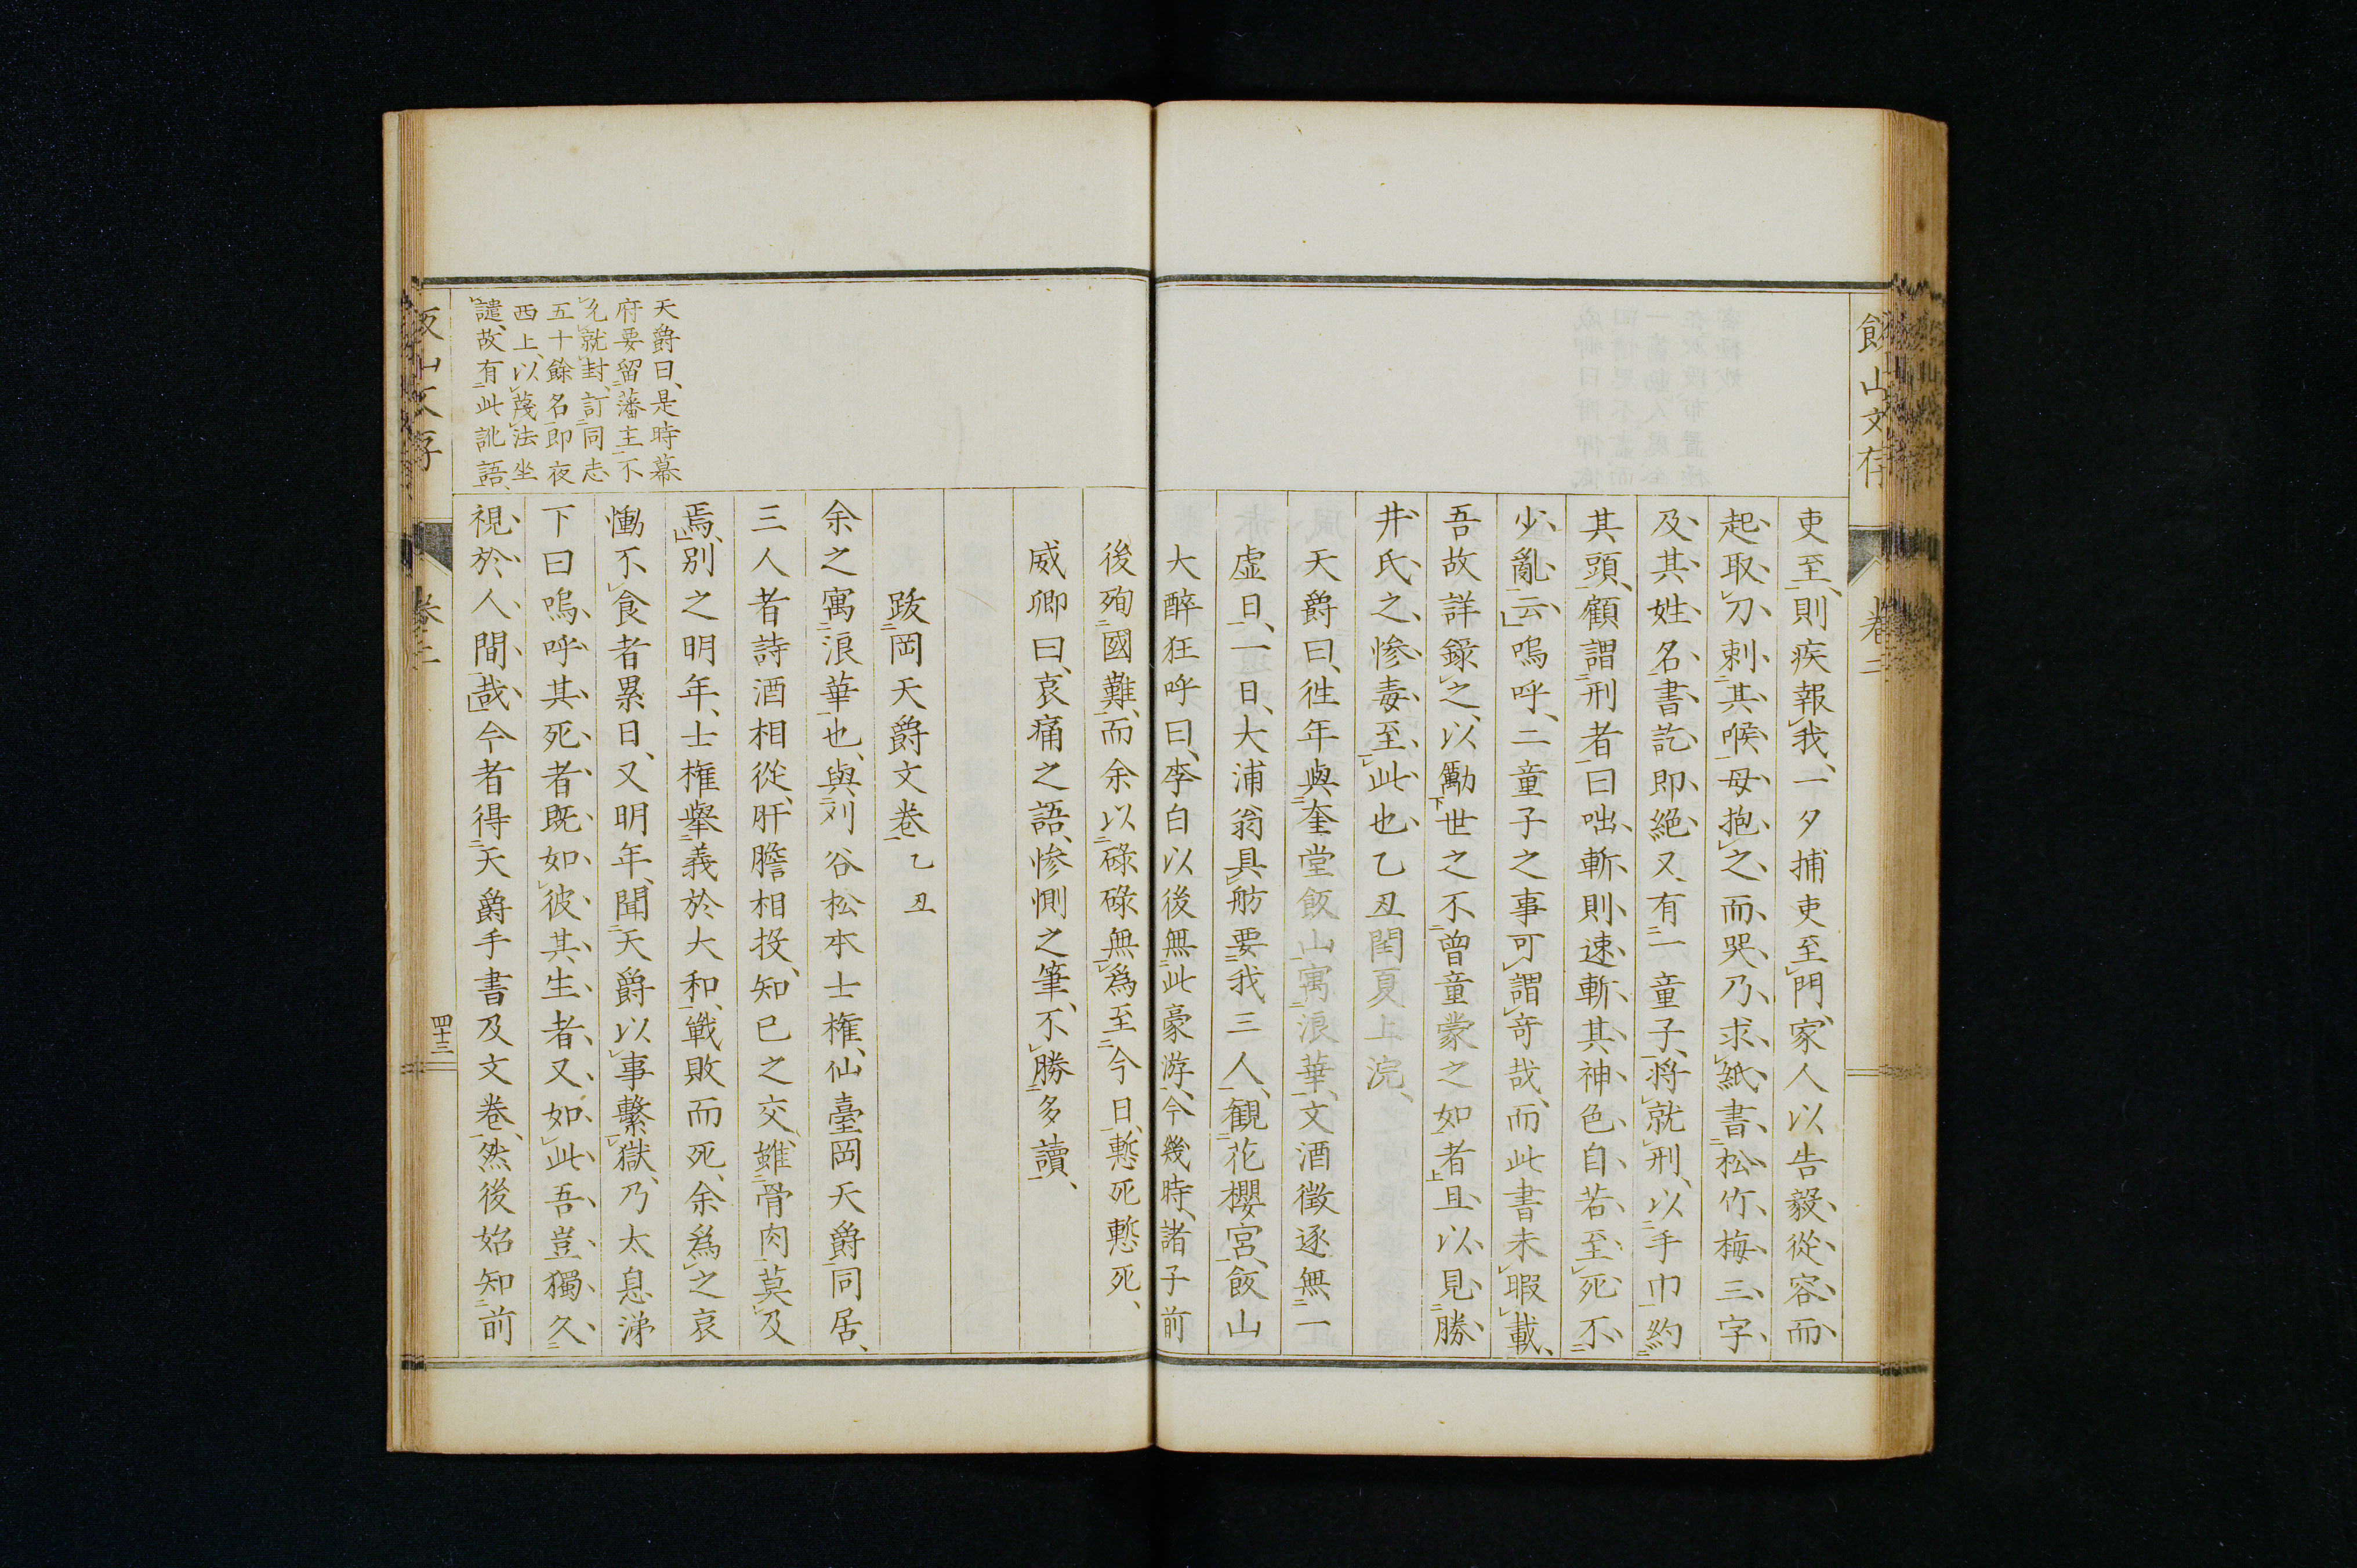 飯山文存
卷二
吏至、則疾報我、一夕捕吏至門、家人以告毅、從容而
起、取刀刺其喉、母抱之、而哭、乃求紙、書松竹梅三字、
及其姓名、書訖即絕、又有一童子、將就刑、以手巾約
其頭、顧謂刑者曰、咄、斬則速斬、其神色自若、至死不
少亂云、嗚呼、二童子之事、可謂奇哉、而此書未暇載、
吾故詳錄之、以勵世之不曾童蒙之如者、且以見勝
井氏之慘毒至此也、乙丑閏夏上浣、
天爵曰、徃年與奎堂飯山寓浪華、文酒徵逐無一
虛日、一日、大浦翁具舫要我三人、觀花櫻宮、飯山
大醉狂呼曰、李白以後無此豪游、今幾時、諸子前
後殉國難、而余以碌碌無爲至今日、慙死慙死、
威卿曰、哀痛之語、慘惻之筆、不勝多讀、
跋岡天爵文卷 乙丑
余之寓浪華也、與刈谷松本士權、仙臺岡天爵同居、
三人者詩酒相從、肝膽相投、知己之交、雖骨肉莫及
焉、別之明年、士權舉義於大和、戰敗而死、余爲之哀
慟不食者累日、又明年、聞天爵以事繫獄、乃太息涕
下曰、嗚呼其死者既如彼、其生者又如此、吾豈獨久
視於人間哉、今者得天爵手書及文卷、然後始知前
天爵曰、是時幕
府要留藩主、不
允就封、訂同志
五十餘名、即夜
西上、以蔑法坐
譴、故有此訛語、
飯山文存
卷二
四十三